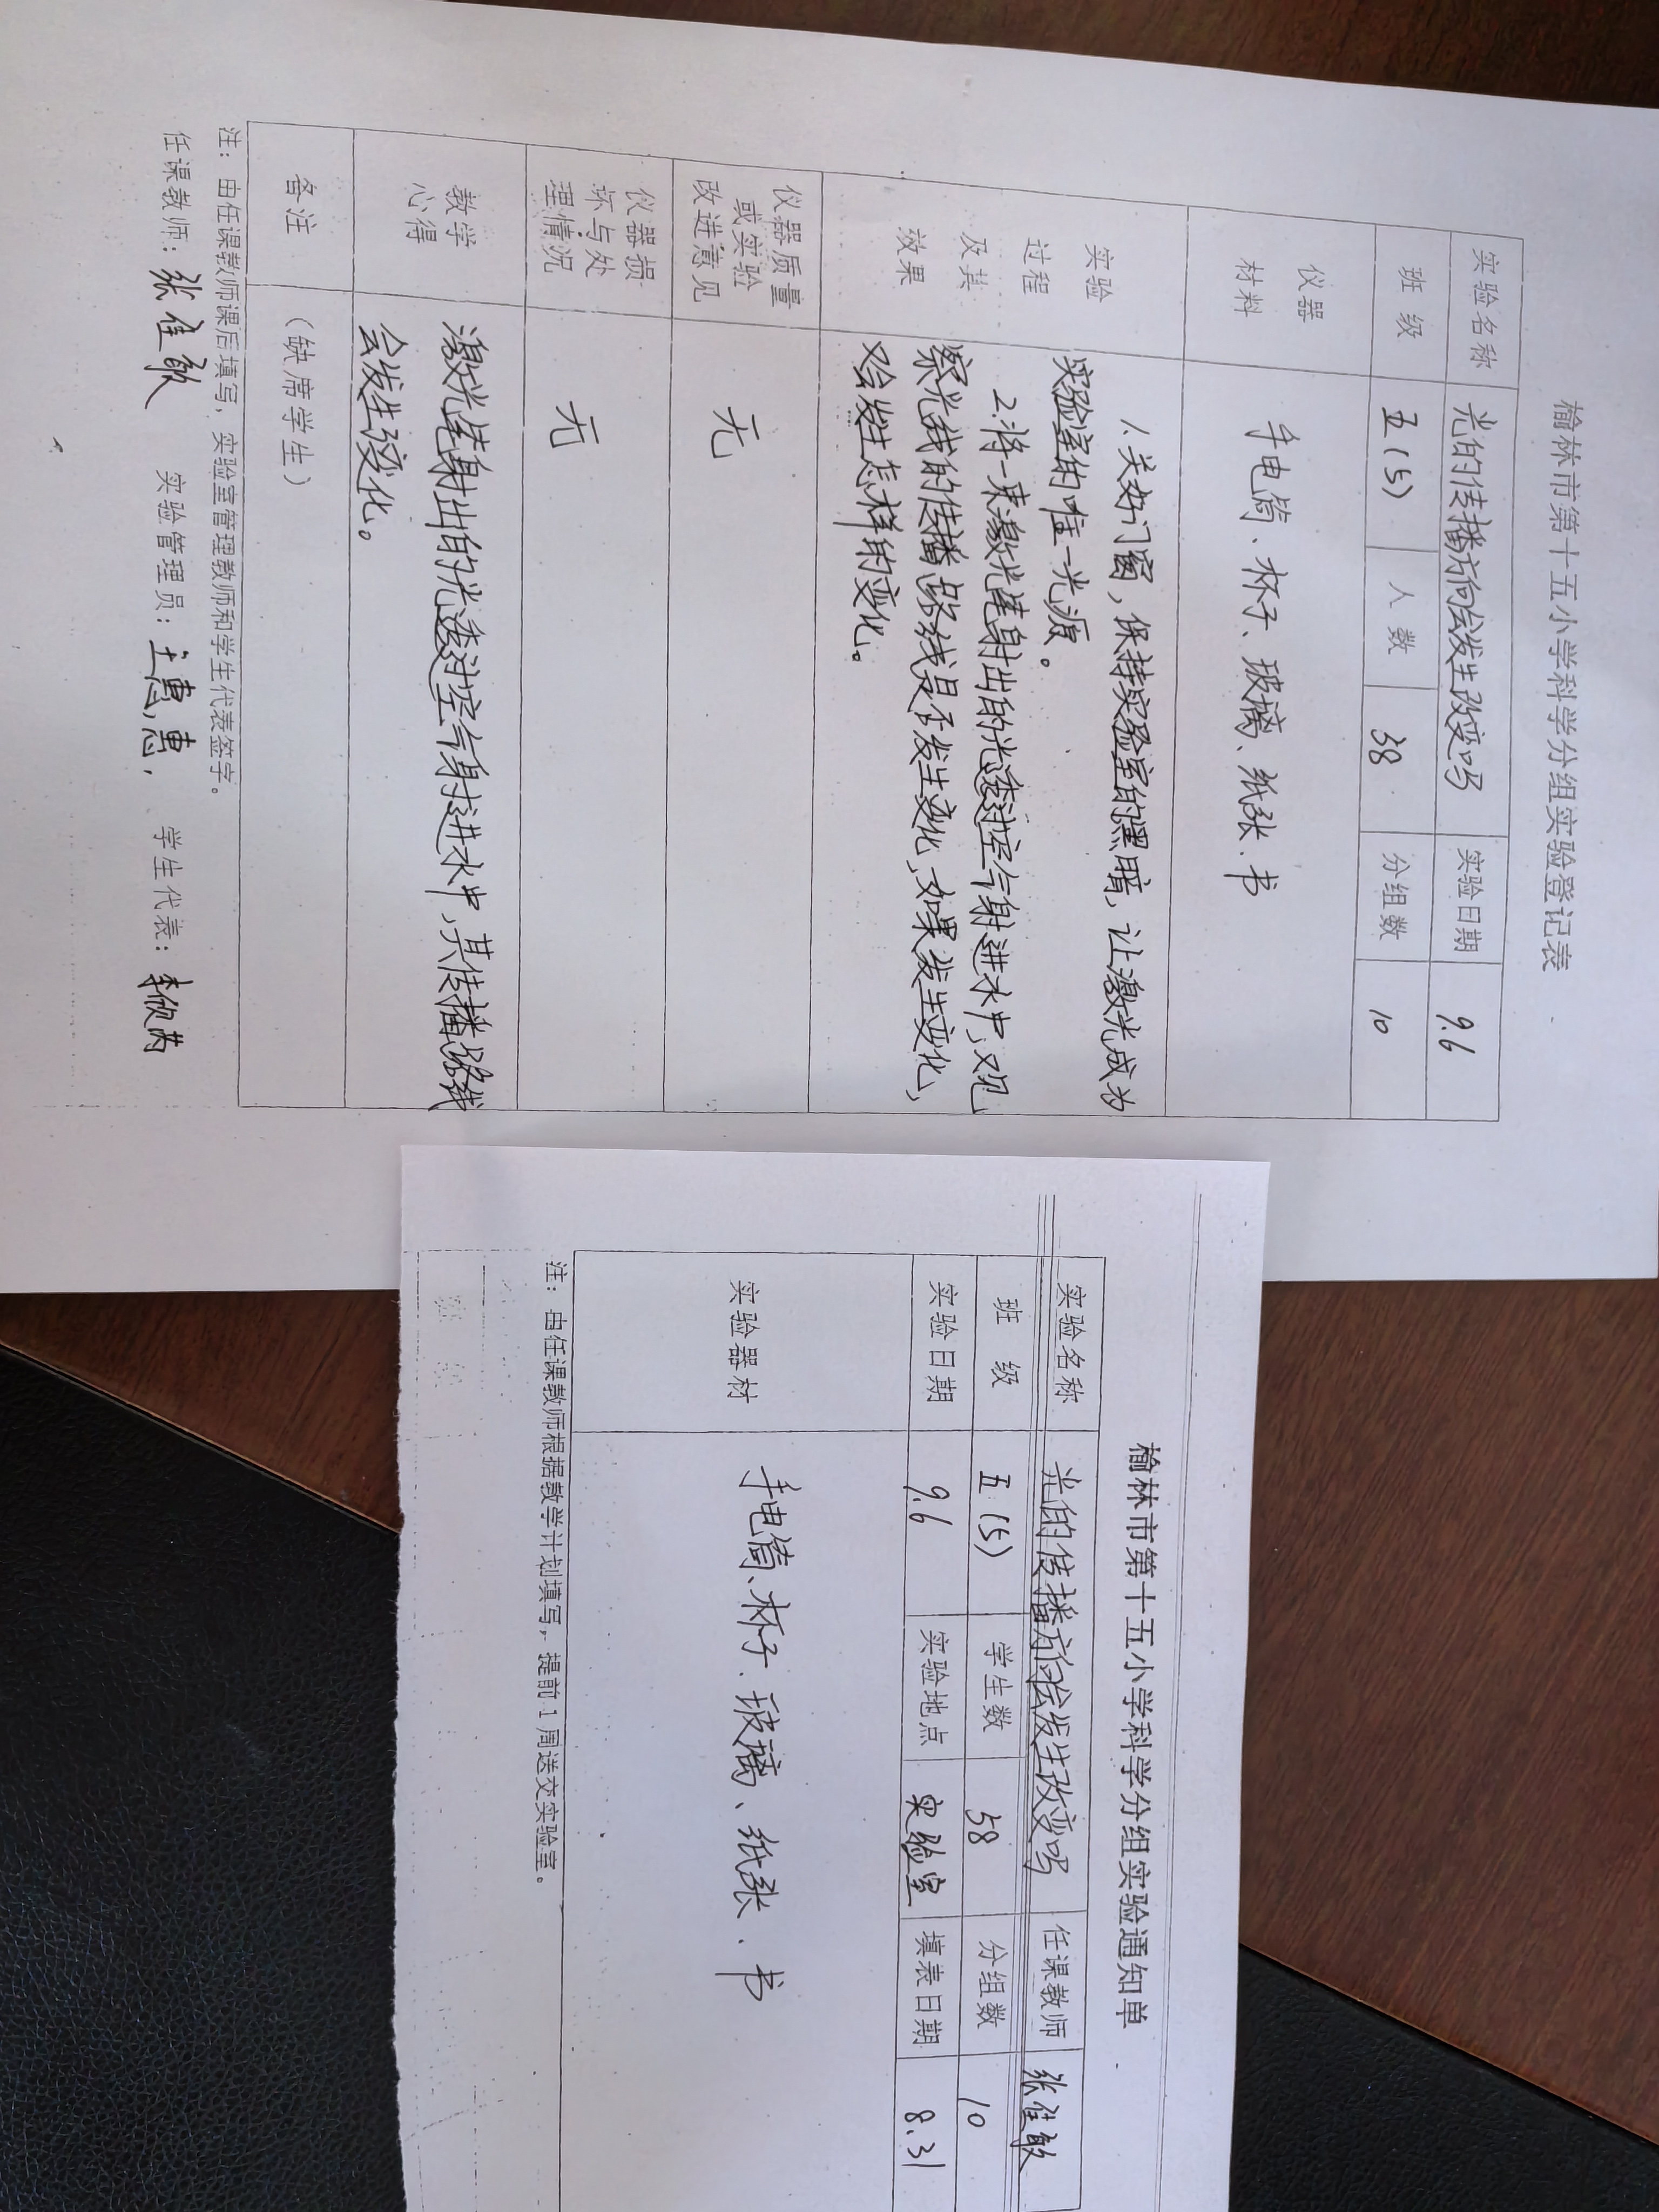 榆林市第十五小学科学分组实验登记表
实验名称 光的传播方向会发生改变吗 实验日期 9.6
班级 五(5) 人数 38 分组数 10
仪器材料 手电筒、杯子、玻璃、纸张、书
实验过程及其效果
1.关好门窗,保持实验室的黑暗,让激光成为
实验室的唯一光源。
2.将一束激光笔射出的光透过空气射进水中,观
察光线的传播路线是否发生变化,如果发生变化,
又会发生怎样的变化。
仪器质量或实验改进意见 无
仪器损坏与处理情况 无
教学心得
激光笔射出的光透过空气射进水中,其传播路线
会发生变化。
备注 (缺席学生)
注:由任课教师课后填写,实验室管理教师和学生代表签字。
任课教师:张佳敏 实验管理员:王惠惠 学生代表:李欣芮
榆林市第十五小学科学分组实验通知单
实验名称 光的传播方向会发生改变吗 任课教师 张佳敏
班级 五(5) 学生数 58 分组数 10
实验日期 9.6 实验地点 实验室 填表日期 8.31
实验器材 手电筒、杯子、玻璃、纸张、书
注:由任课教师根据教学计划填写,提前1周送交实验室。